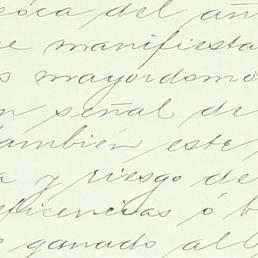 óca del añ
e manifiesta
s mayordomo
n señal de
también este
a y riesgo de
eficencias ó b
e ganado all